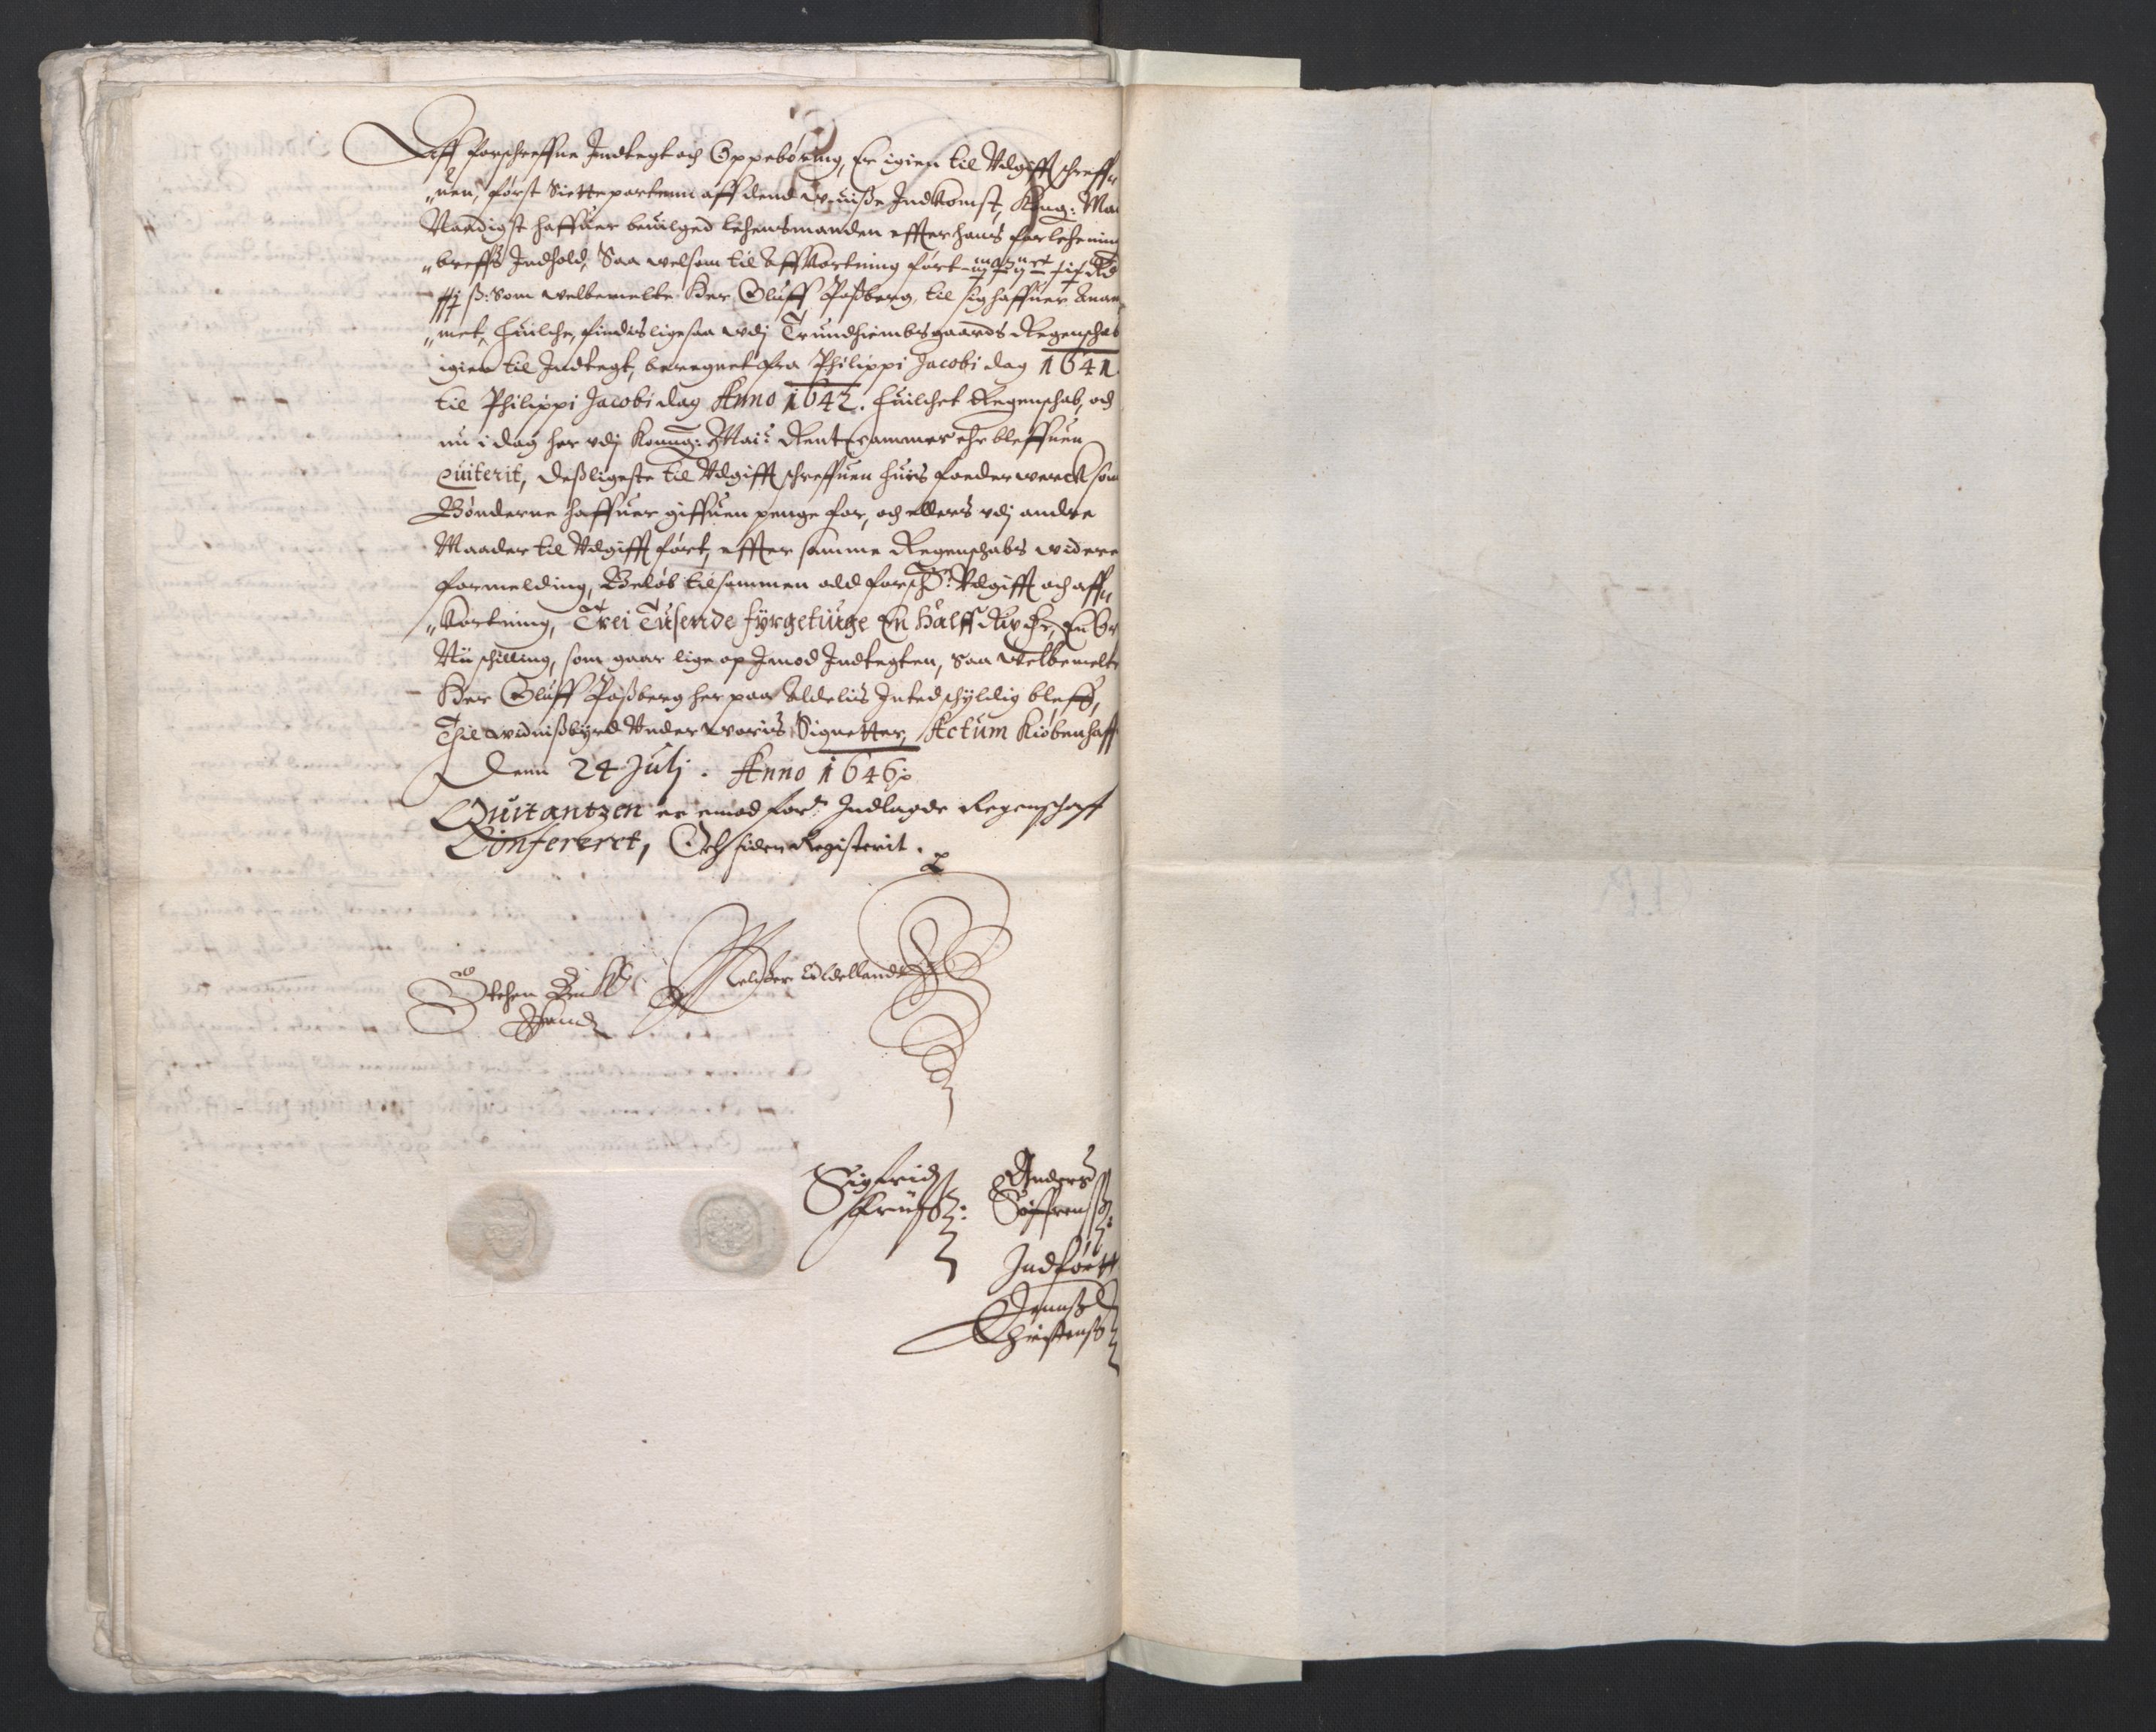 Aff forschreffne Indtegt och Oppebøring, Er igien til Udgifft schreff„
„uen, først Siettepartenn aff dend wuisse Indkomst, Kong: Ma
Naadigst haffuer beuilged Lehensmanden effter hans forlehnin
„breffs Indhold, Saa welsom til Affkortning ført
ß: Som welbemelte Her Oluff Paßberg, til sig haffuer Anam
„met, Huilche, findis ligesaa udj Trundhiembs gaards Regenschab
igien til Indtegt, beregnet fra Philippi Jacobi dag 1641
til Philippi Jacobi dag Anno 1642. Huilchet Regenschab, och
nu i dag her udj Konng: Maitz Rentecammer ehr bleffuen
Quiterit, deßligeste til Udgifft schreffuen huis foeder werck som
Bønderne haffuer giffuen penge for, och ellers udj andre
Maader til Udgifft ført, effter samme Regenschabs widere
formelding, Beløb tilsammen all forschne: Udgifft och aff„
„kortning, Trei Tusende fyrgetiuge En halff Rix dr, En Or
Nii schilling, som gaar lige op Imod Indtegten, Saa Welbemelte
Her Oluff Paßberg her paa Aldelis Inted schyldig bleff,
Thil widnißbyrd Under woris Signetter, Actum Kiøbenhaff
Denn 24 Julj. Anno 1646
Quitantzen er emod for: Indlagde Regenschaff
Confereret, Och siden Registerit.
Stehen
Hand
Melcher Oldelland
Sigfrid
Friis
Anders
Søffrensß
Indførtt
Jennß
Christensß